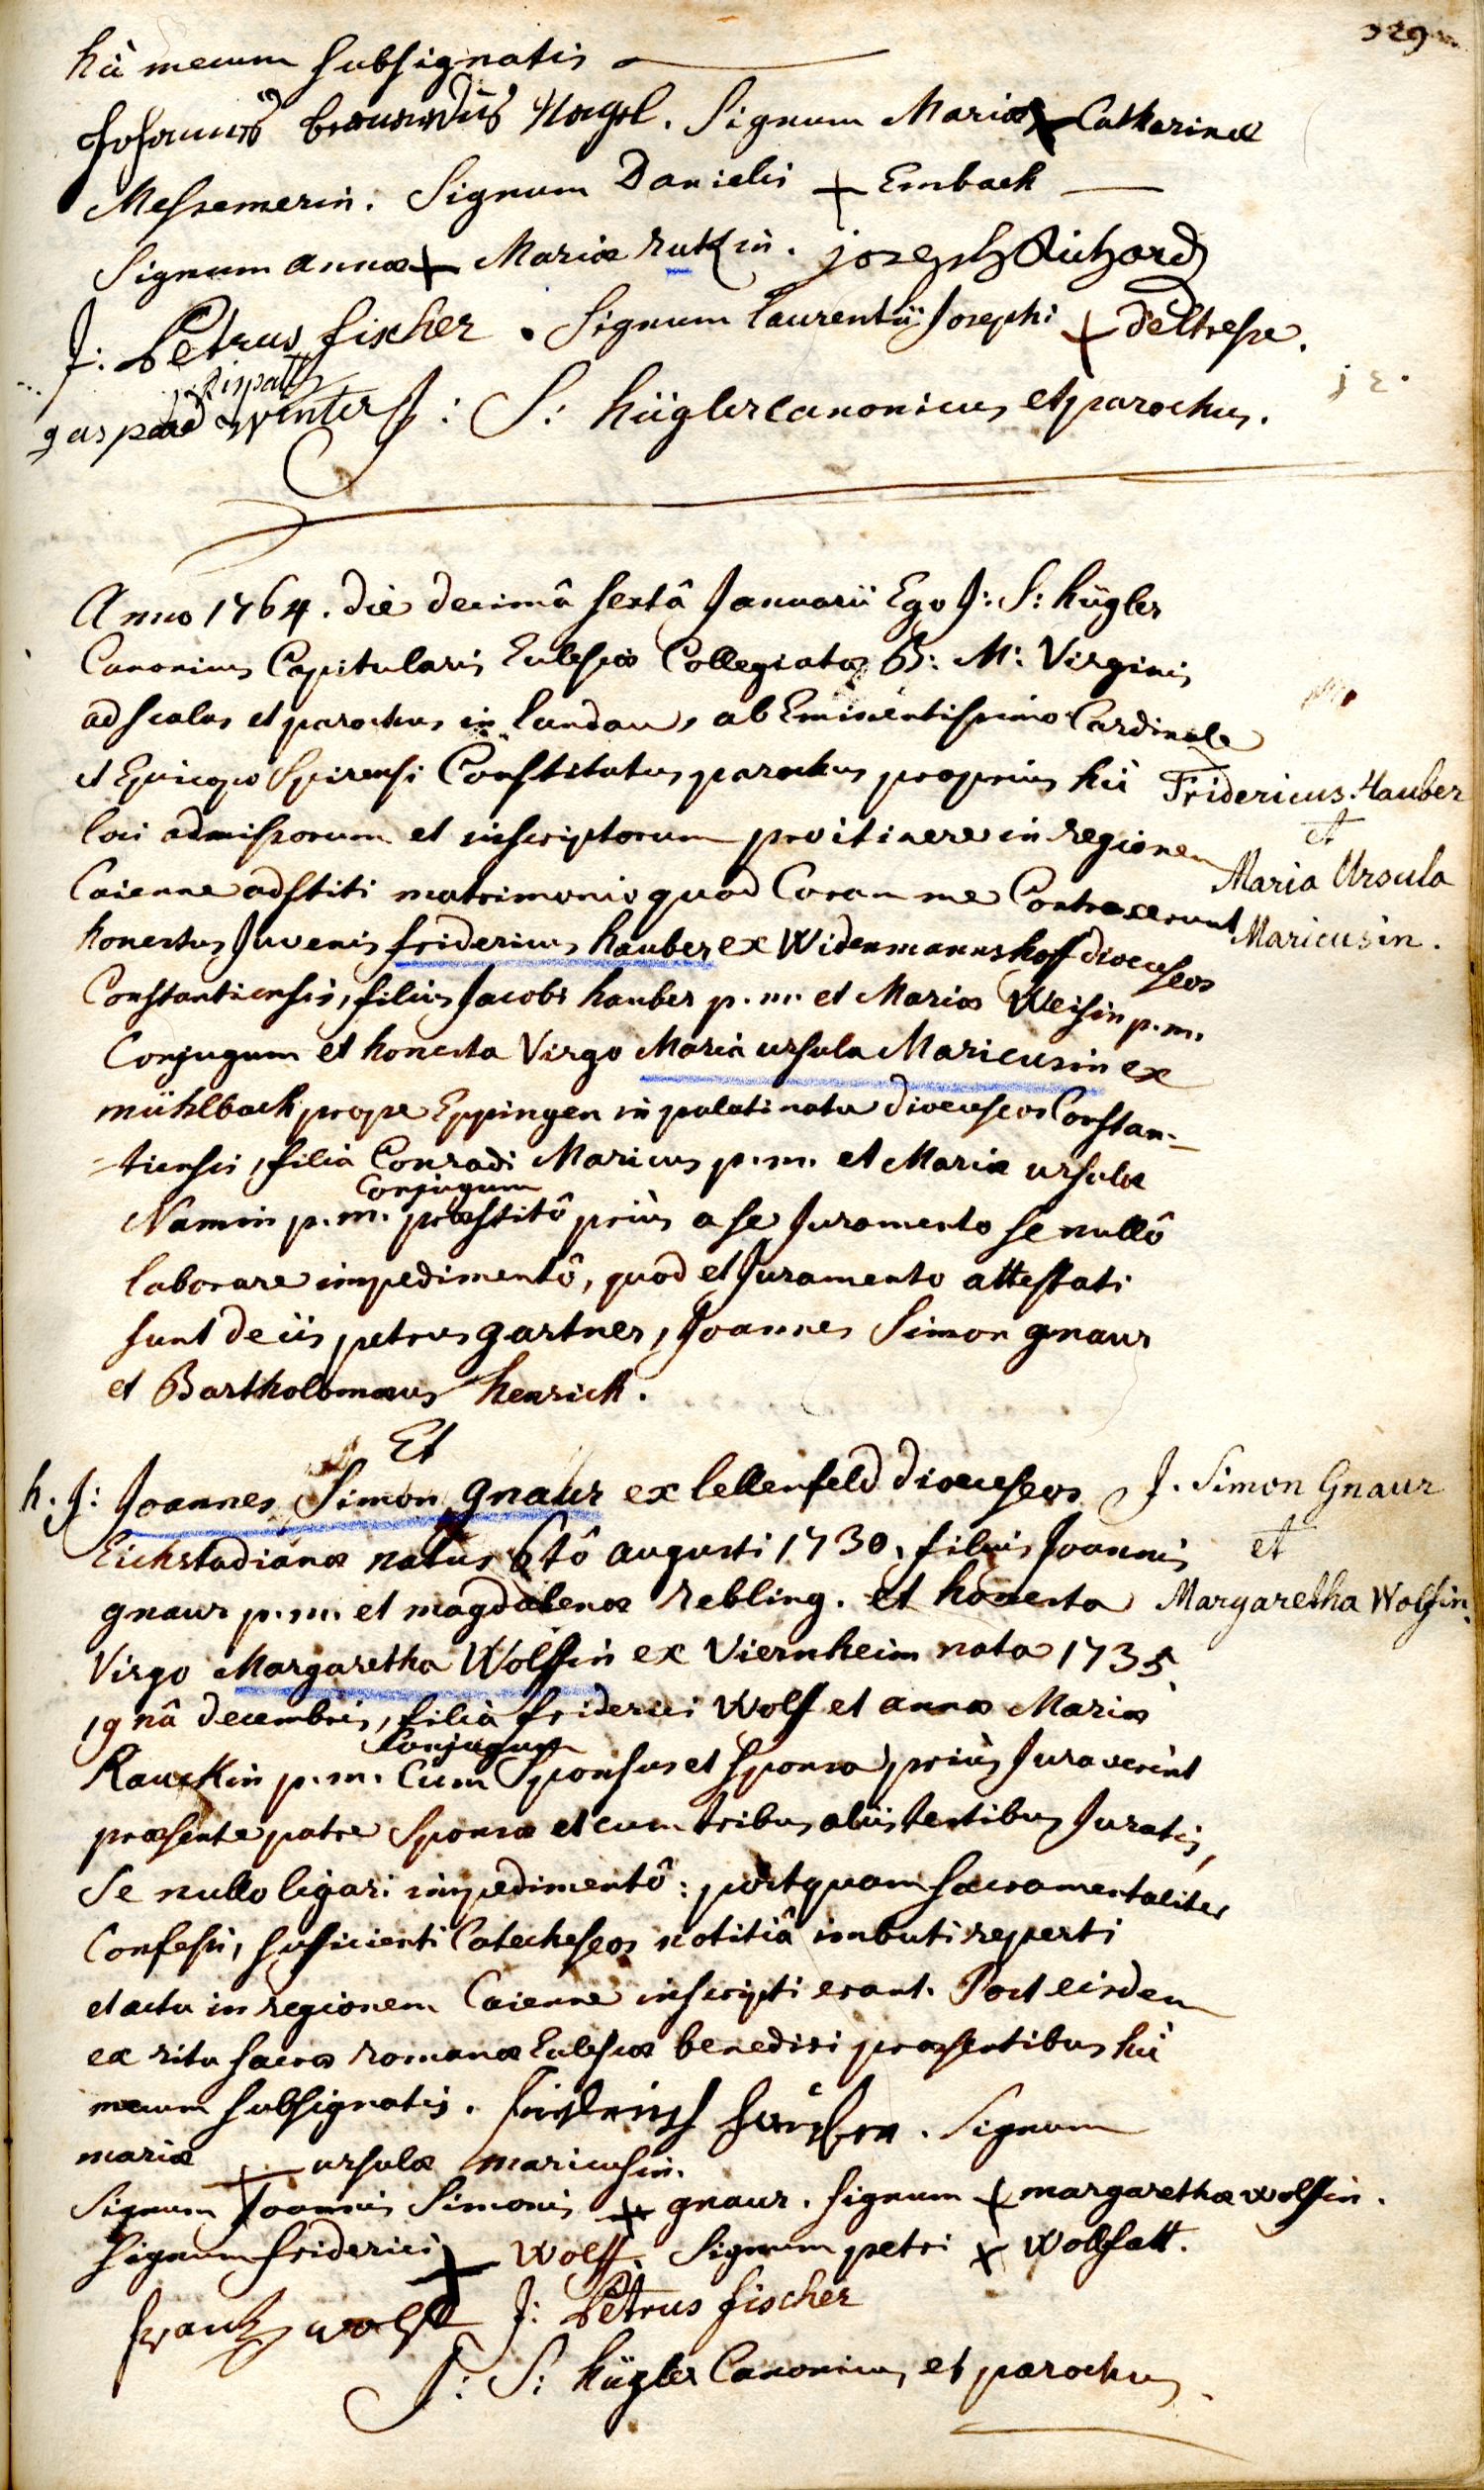 329
hìc mecum subsignatis
Johannes bernardus Nagel. Signum Mariæ + Catharinæ
Messemerin. Signum Danielis + Embach
Signum annæ + Mariæ rutzin. joseph Richard
J: Petrus fischer. Signum laurentii Josephi + deltresse.
gaspard winter J: S: hügler canonicus et parochus.
Anno 1764. die decimâ sextâ Januarii Ego J: S: hügler
Canonicus Capitularis Ecclesiæ Collegiatæ B: M: Virginis
ad scalas et parochus in landau, ab Eminentissimo Cardinale
et Episcopo Spirensi Constitutus parochus proprius hìc
loci admissorum et inscriptorum pro itinere in regionem
Caienne adstiti matrimonio quod Coram me Contraxerunt
honestus Juvenis fridericus hauber ex Widenmannshoff dioeceseos
Constantiensis, filius Jacobi hauber p.m. et Mariæ Weisin p.m.
Conjugum et honesta Virgo Maria ursula Maricusin ex
mühlbach prope Eppingen in palatinatu dioeceseos Constan-
-tiensis, filia Conradi Maricus p.m. et Mariæ ursulæ
Namin p.m. Conjugum præstitô priùs a se Juramento se nullô
laborare impedimentô, quod et Juramento attestati
sunt de iis petrus gartner, Joannes Simon gnaur
et Bartholomæus henrich.
Fridericus Hauber
et
Maria Ursula
Maricusin.
Et
h. J: Joannes Simon gnaur ex lellenfeld dioeceseos
Eichstadianæ natus 6tô augusti 1730, filius Joannis
gnaur p.m. et magdalenæ rebling. et honesta
Virgo Margaretha Wolffin ex Viernheim nata 1735
19nâ decembris, filia friderici Wolf et annæ Mariæ
Rauckin p.m. Conjugum Cum Sponsus et sponsa priùs Juraverint
præsente patre Sponsæ et cum tribus aliis testibus Juratis,
Se nullo ligari impedimentô: postquam sacramentaliter
Confessi, sufficienti Catecheseos notitiâ imbuti reperti
et actu in regionem Caienne inscripti erant. Post eisdem
ex ritu sacræ romanæ Ecclesiæ benedixi præsentibus hìc
mecum subsignatis. Signum
mariæ + ursulæ maricusin.
Signum Joannis Simonis + gnaur. Signum + margarethæ wolffin.
Signum friderici + Wolff. Signum petri + Wollsatt.
frantz wolff J: Petrus fischer
J: S: hügler Canonicus et parochus.
J. Simon Gnaur
et
Margaretha Wolfin.